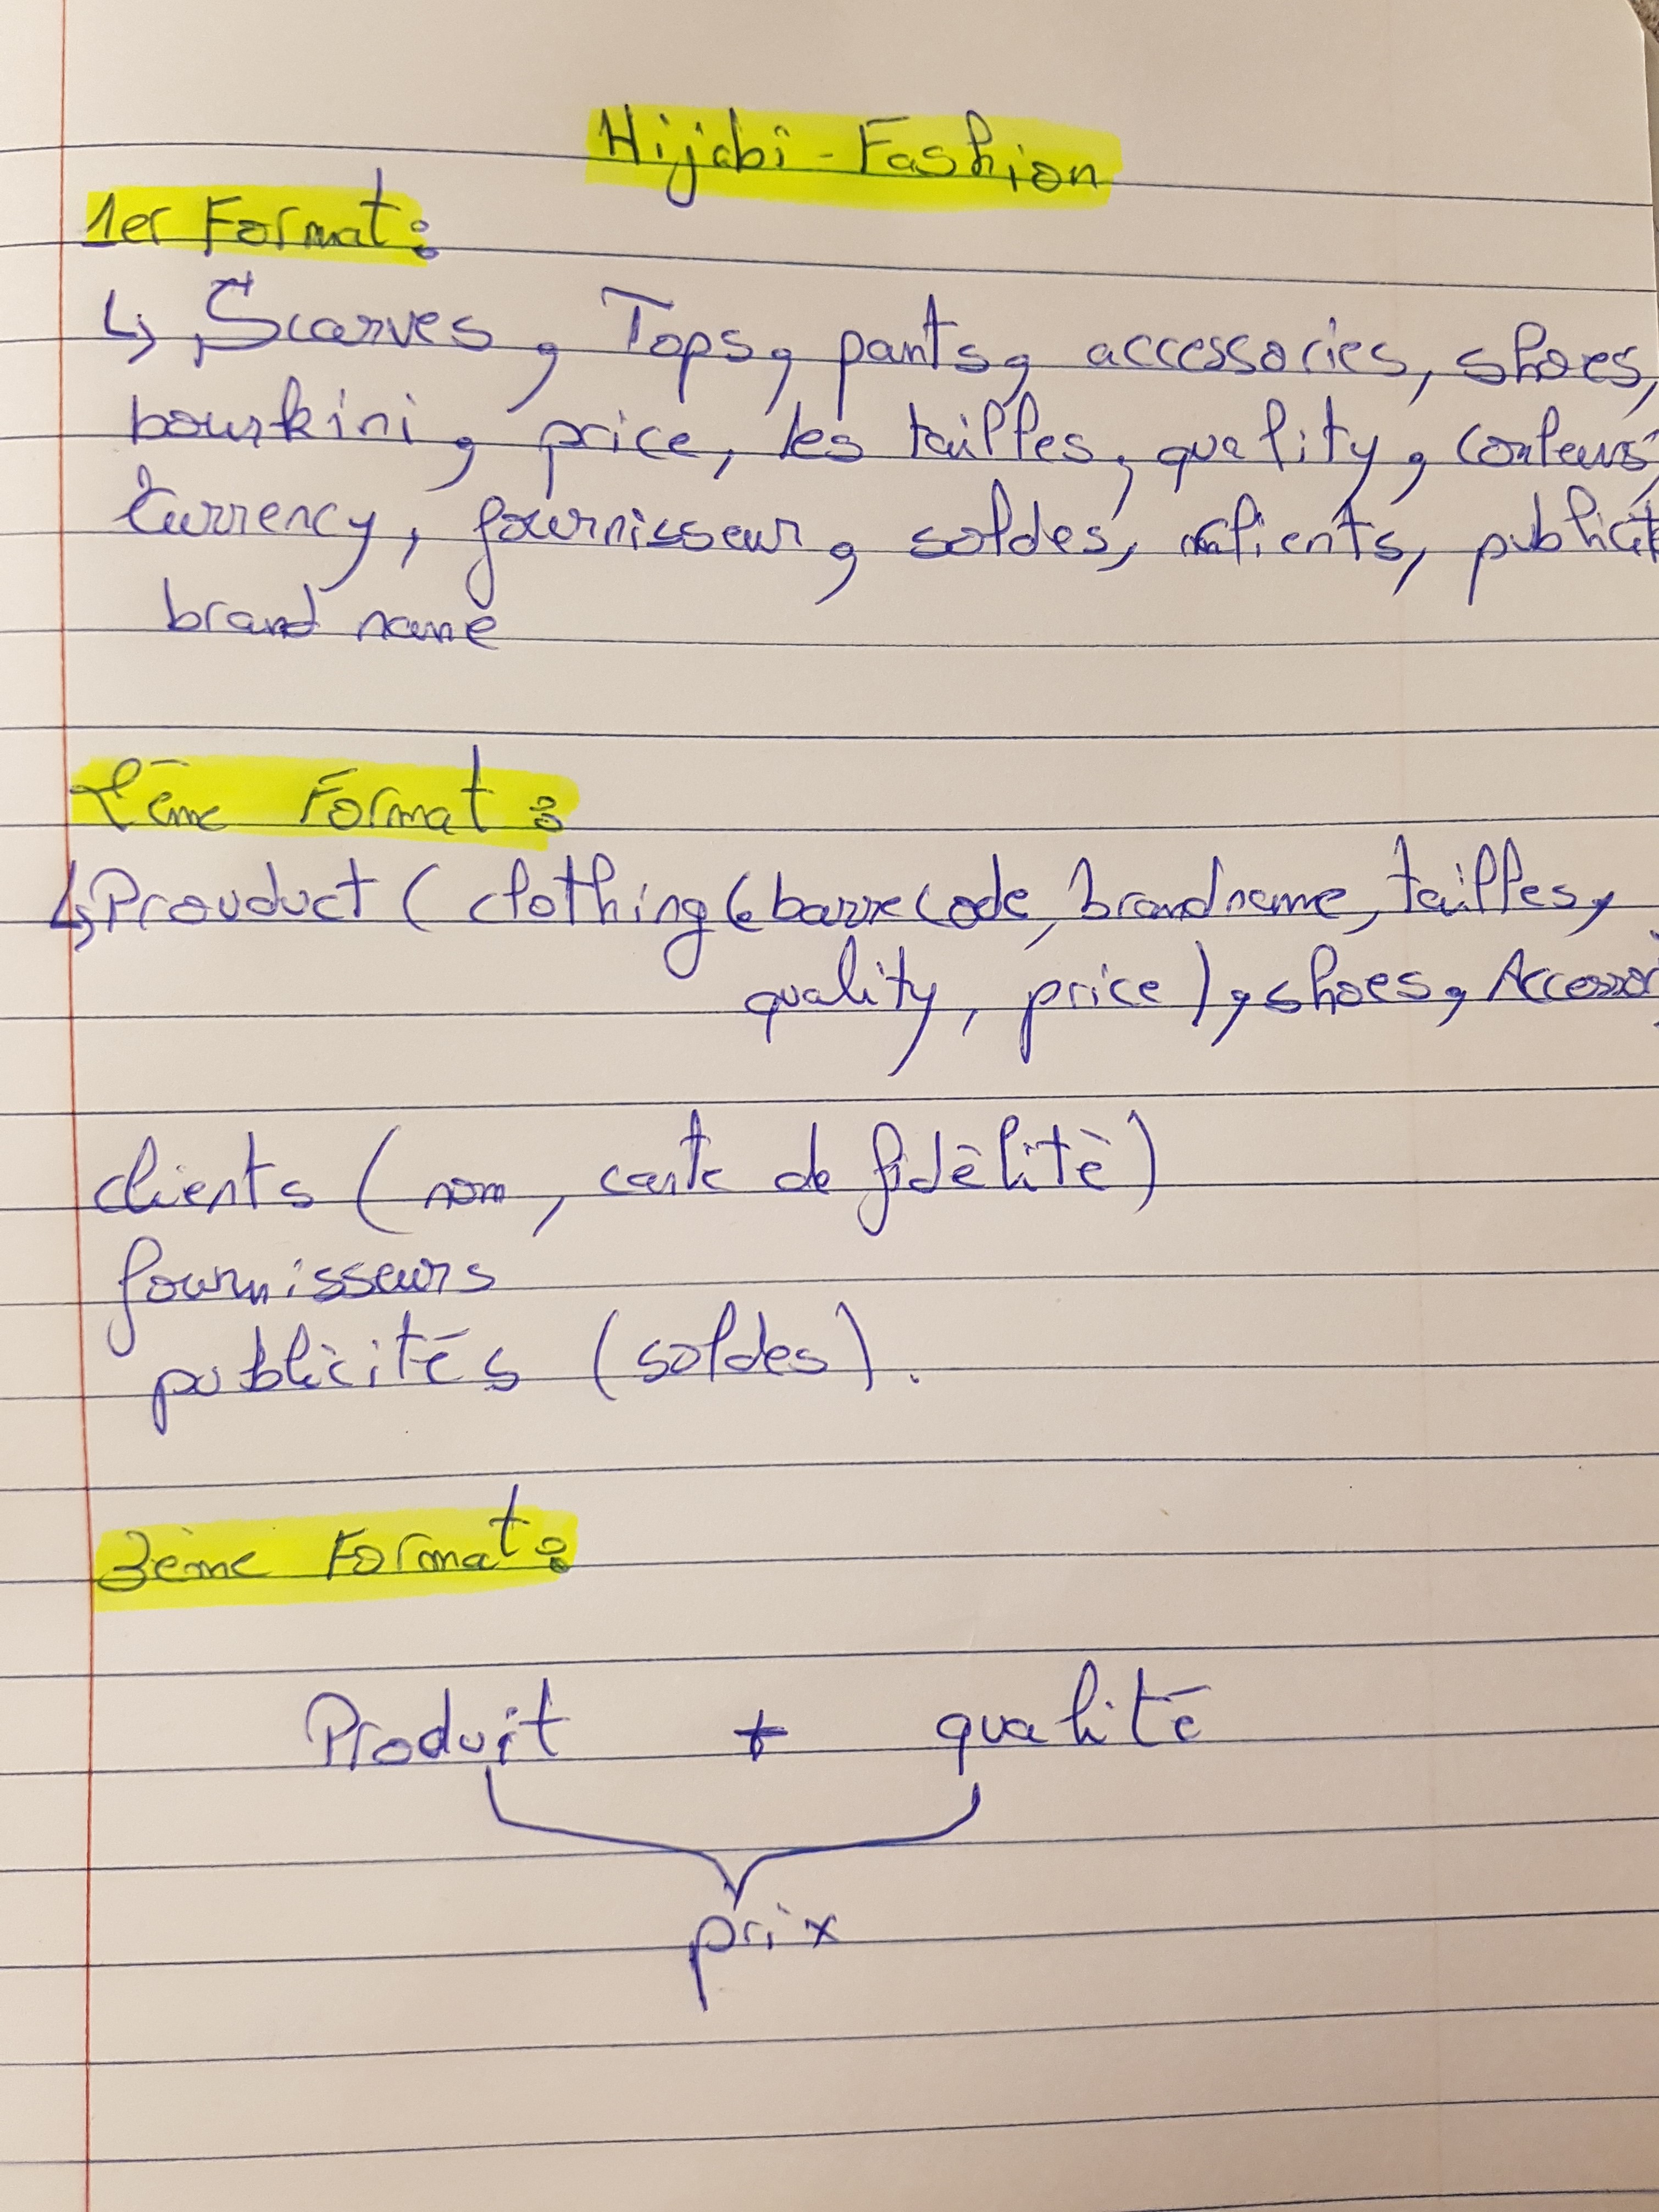 Hijabi-Fashion
1er Format:
↳ Scarves, Tops, pants, accessories, shoes,
bourkini, price, les tailles, quality, couleurs,
currency, fournisseur, soldes, clients, publicit
brand name
2ème Format:
↳ Prouduct ( clothing ( barre code, brand name, tailles,
quality, price ), shoes, Accessor
clients ( nom, carte de fidèlitè )
fournisseurs
publicités ( soldes ).
3ème Format:
Produit + qualité
prix